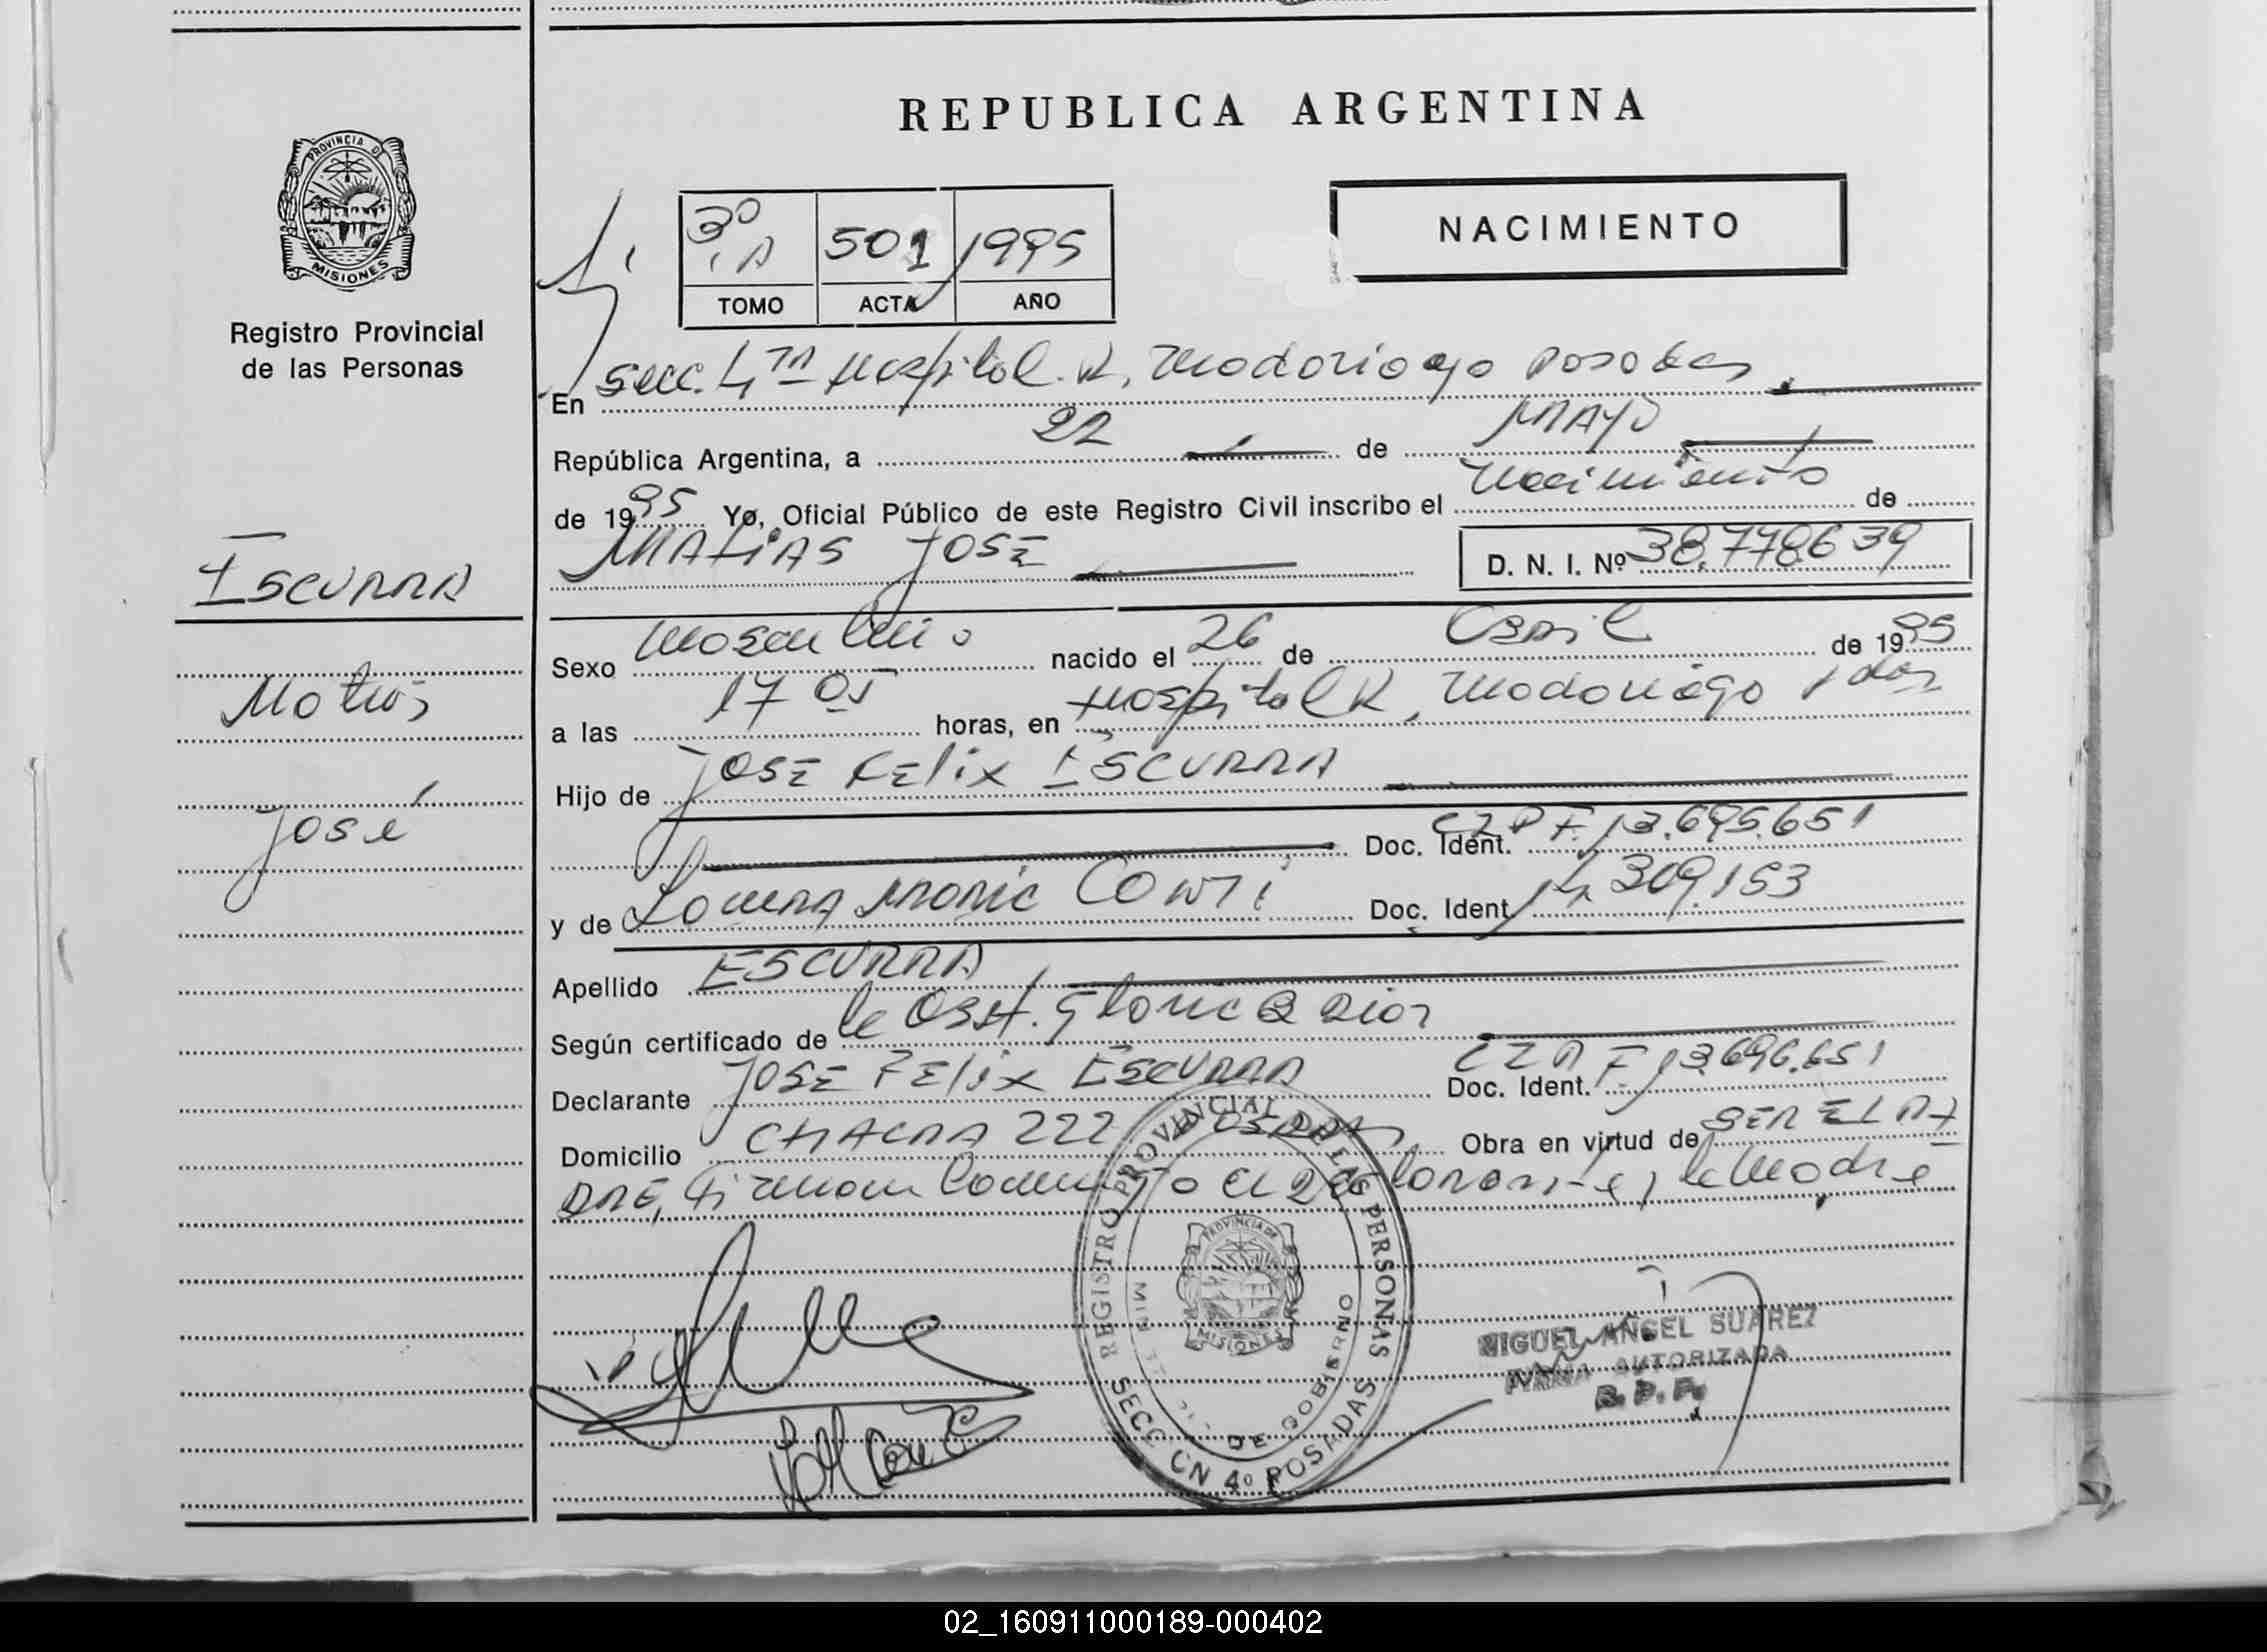 REPUBLICA ARGENTINA
PROVINCIA D
MISIONES
Registro Provincial
de las Personas
3º A 501 1995
TOMO ACTA AÑO
NACIMIENTO
En Secc. 4ta Hospital R. Madariaga Posadas
República Argentina, a 22 de MAYO
de 1995 Yo, Oficial Público de este Registro Civil inscribo el nacimiento de
MATIAS JOSE D. N. I. Nº 38.778.639
ESCURRA
Matias
José
Sexo masculino nacido el 26 de Abril de 1995
a las 17 05 horas, en Hospital R. Madariaga Pdas
Hijo de JOSE FELIX ESCURRA
Doc. Ident. CZPF. 13.695.651
y de Maria Doc. Ident. 309.153
Apellido ESCURRA
Según certificado de la Obst. Gloria
Declarante JOSE FELIX ESCURRA Doc. Ident. 13.696.651
Domicilio CHACRA 222 POSADAS Obra en virtud de SER EL PA
DRE, Firman el declarante y la Madre
REGISTRO PROVINCIAL DE LAS PERSONAS
PROVINCIA DE
MISIONES
MIN DE GOBIERNO
SECCION 4º POSADAS
MIGUEL ANGEL SUAREZ
FIRMA AUTORIZADA
R. P. P.
02_160911000189-000402